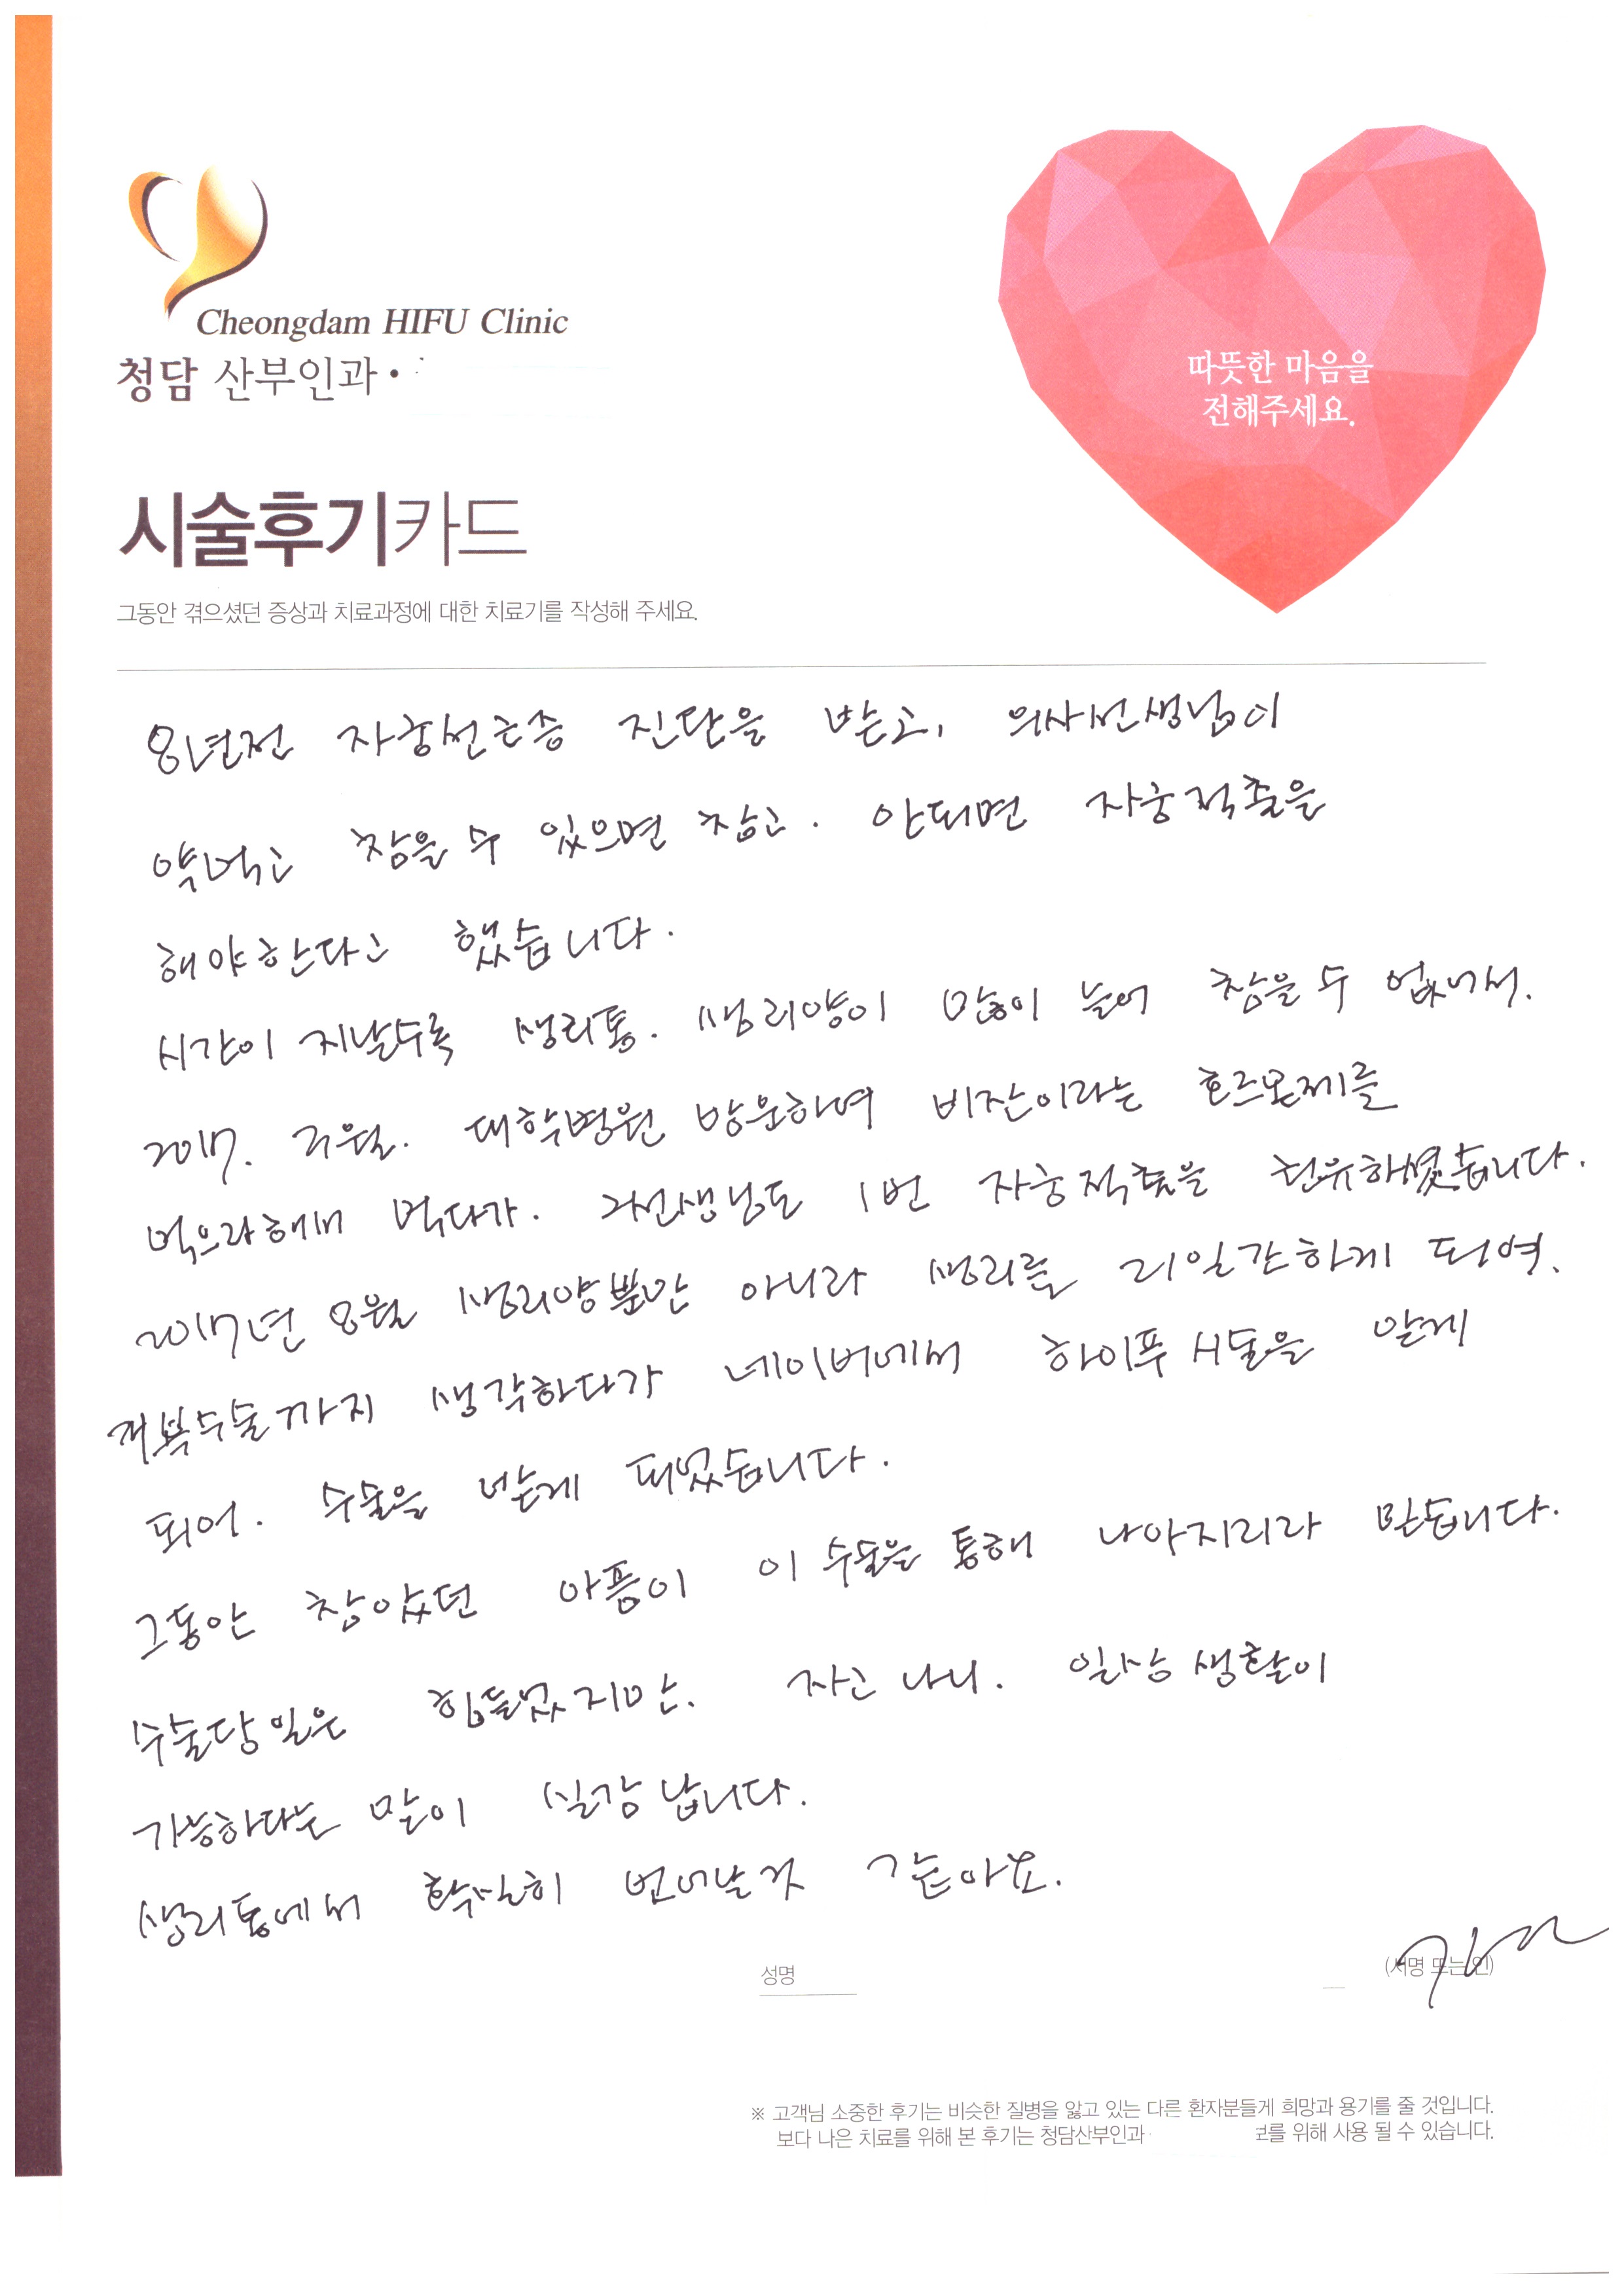 Cheongdam HIFU Clinic
청담 산부인과 •
따뜻한 마음을
전해주세요.
시술후기카드
그동안 겪으셨던 증상과 치료과정에 대한 치료기를 작성해 주세요.
8년전 자궁선근증 진단을 받고, 의사선생님이
약먹고 참을 수 있으면 참고. 안되면 자궁적출을
해야한다고 했습니다.
시간이 지날수록 생리통. 생리양이 많이 늘어 참을 수 없어서.
2017. 구월. 대학병원 방문하여 비잔이라는 호르몬제를
먹으라해서 먹다가. 그선생님도 1번 자궁적출을 권유하셨습니다.
2017년 8월 생리양뿐만 아니라 생리를 21일간하게 되여.
개복수술까지 생각하다가 네이버에서 하이푸 시술을 알게
되어. 수술을 받게 되었습니다.
그동안 참았던 아픔이 이 수술을 통해 나아지리라 믿습니다.
수술당일은 힘들었지만. 자고 나니. 일상생활이
가능하다는 말이 실감납니다.
생리통에서 확실히 벗어날것 같아요.
성명
(서명 또는 인)
※ 고객님 소중한 후기는 비슷한 질병을 앓고 있는 다른 환자분들게 희망과 용기를 줄 것입니다.
보다 나은 치료를 위해 본 후기는 청담산부인과 보를 위해 사용 될 수 있습니다.